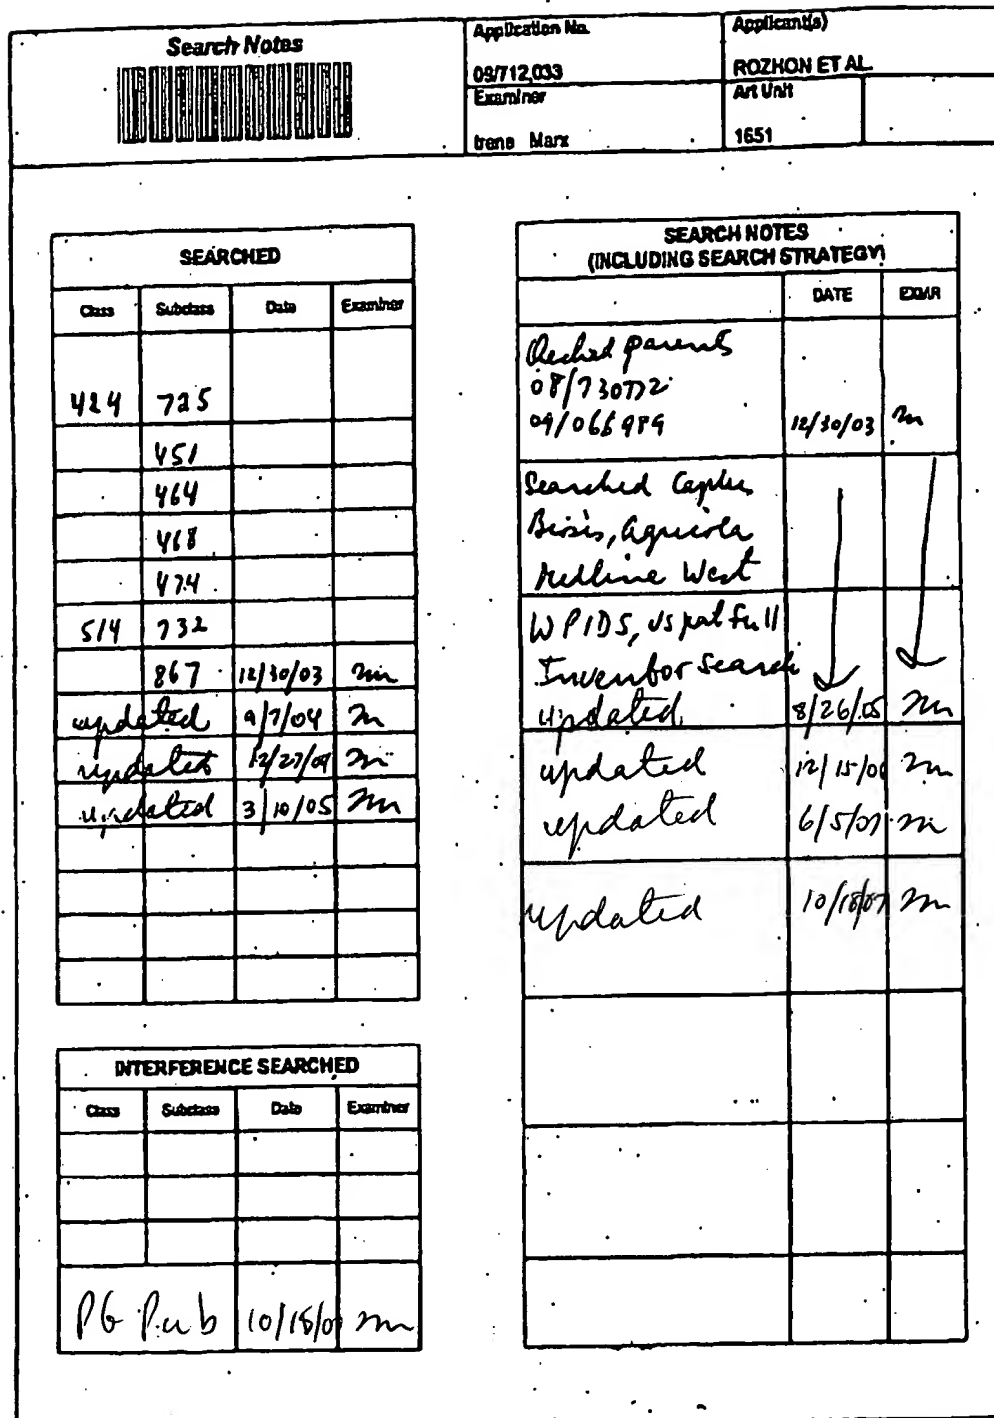 Search Notes
Application No.
Applicant(s)
09/712,033
ROZHON ET AL.
Examiner
Art Unit
Irene Marx
1651
SEARCHED
Class Subclass Date Examiner
424 725
451
464
468
474
514 732
867 12/30/03 m
updated 9/7/04 m
updated 12/27/04 m
updated 3/10/05 m
INTERFERENCE SEARCHED
Class Subclass Date Examiner
PG Pub 10/18/0 m
SEARCH NOTES
(INCLUDING SEARCH STRATEGY)
DATE EXMR
Checked parents
08/730772
09/066989 12/30/03 m
Searched Caplus
Biosis, Agricola
Medline West
WPIDS, uspatfull
Inventor Search
updated 8/26/05 m
updated 12/15/06 m
updated 6/5/07 m
updated 10/18/07 m